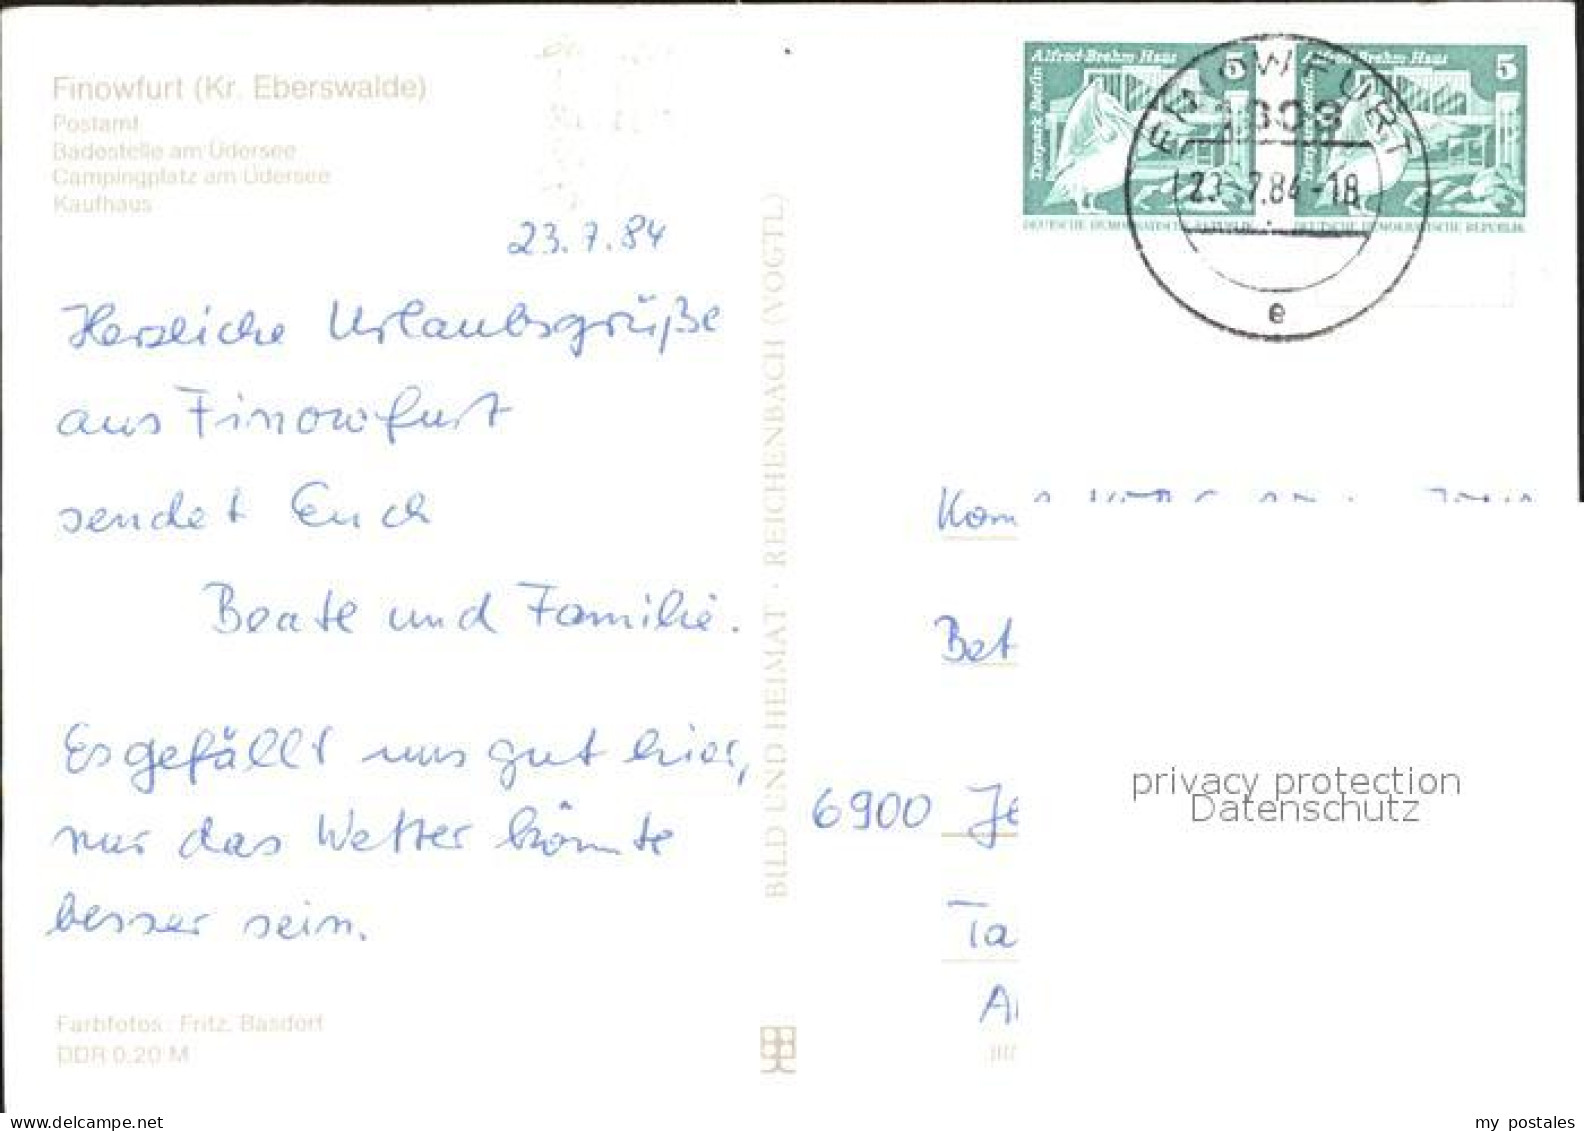 Finowfurt (Kr. Eberswalde)
Postamt
Badestelle am Üdersee
Campingplatz am Üdersee
Kaufhaus
23.7.84
Herzliche Urlaubsgrüße
aus Finowfurt
sendet Euch
Beate und Familie.
Es gefällt uns gut hier,
nur das Wetter könnte
besser sein.
Farbfotos: Fritz, Basdorf
DDR 0,20 M
BILD UND HEIMAT · REICHENBACH (VOGTL)
Alfred-Brehm-Haus 5
Tierpark Berlin
DEUTSCHE DEMOKRATISCHE REPUBLIK
Alfred-Brehm-Haus 5
Tierpark Berlin
DEUTSCHE DEMOKRATISCHE REPUBLIK
FINOWFURT
1303
23.-7.84-18
e
Kom
Bet
6900 Je
Ta
privacy protection
Datenschutz
my postales